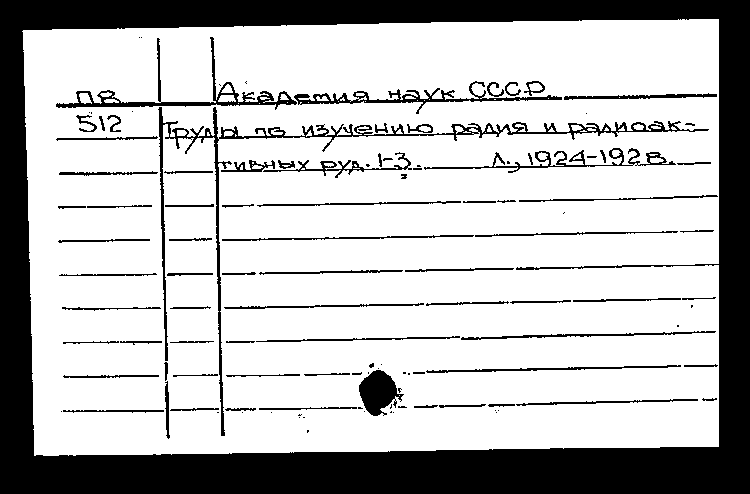 ПВ Академия наук СССР.
512 Труды по изучению радия и радиоак-
тивных руд. 1-3. Л., 1924-1928.